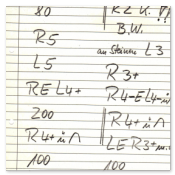 80
R5
L5
REL4+
200
R4+ in
100
KZ U. !!
B.W.
an Steinen L3
R3+
R4-EL4-in
R4+ in
LER3+
100